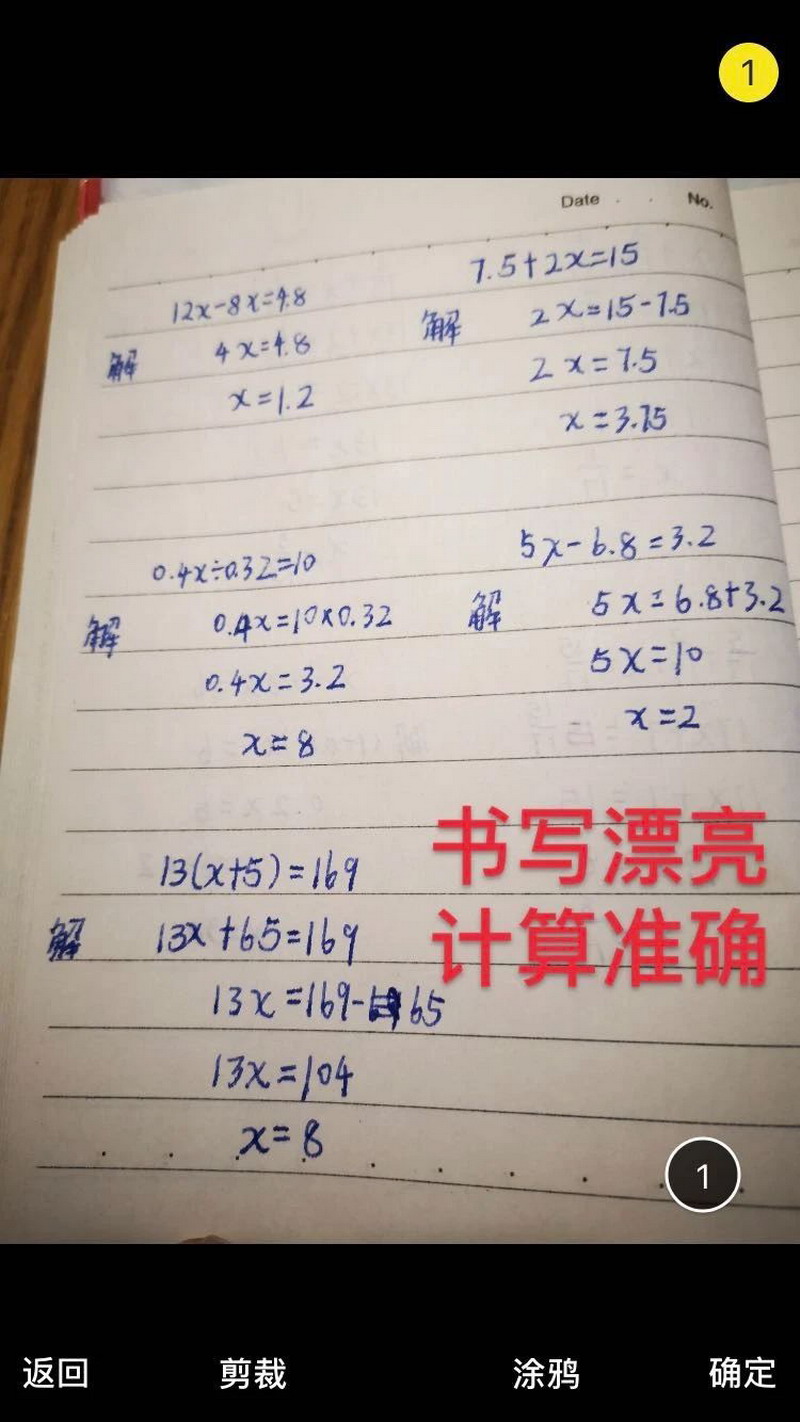 1
Date . . No.
12x-8x=4.8
解 4x=4.8
x=1.2
7.5+2x=15
解 2x=15-7.5
2x=7.5
x=3.75
0.4x÷0.32=10
解 0.4x=10×0.32
0.4x=3.2
x=8
5x-6.8=3.2
解 5x=6.8+3.2
5x=10
x=2
13(x+5)=169
解 13x+65=169
13x=169-65
13x=104
x=8
书写漂亮
计算准确
1
返回 剪裁 涂鸦 确定